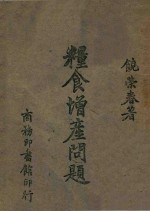 饶荣春著
糧食增產問題
商務印書館印行